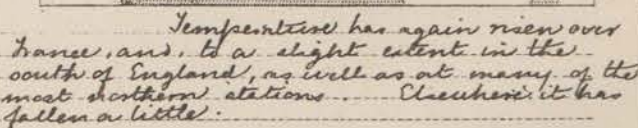 Temperature has again risen over
France, and, to a slight extent in the
south of England, as well as at many of the
most northern stations. Elsewhere it has
fallen a little.